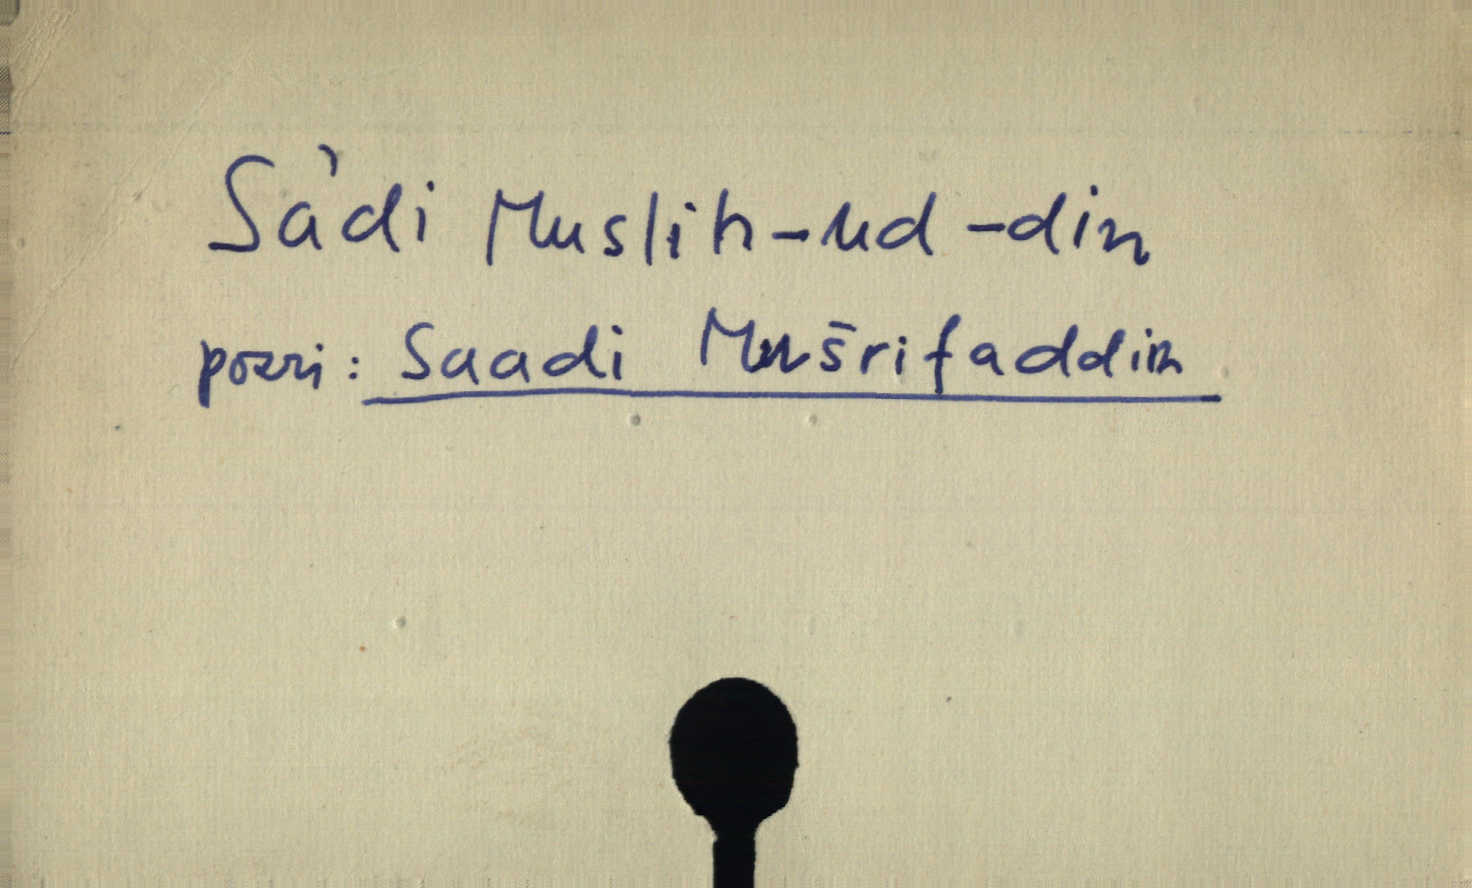 Sa'di Muslih-ud-din
pozri: Saadi Mušrifaddin